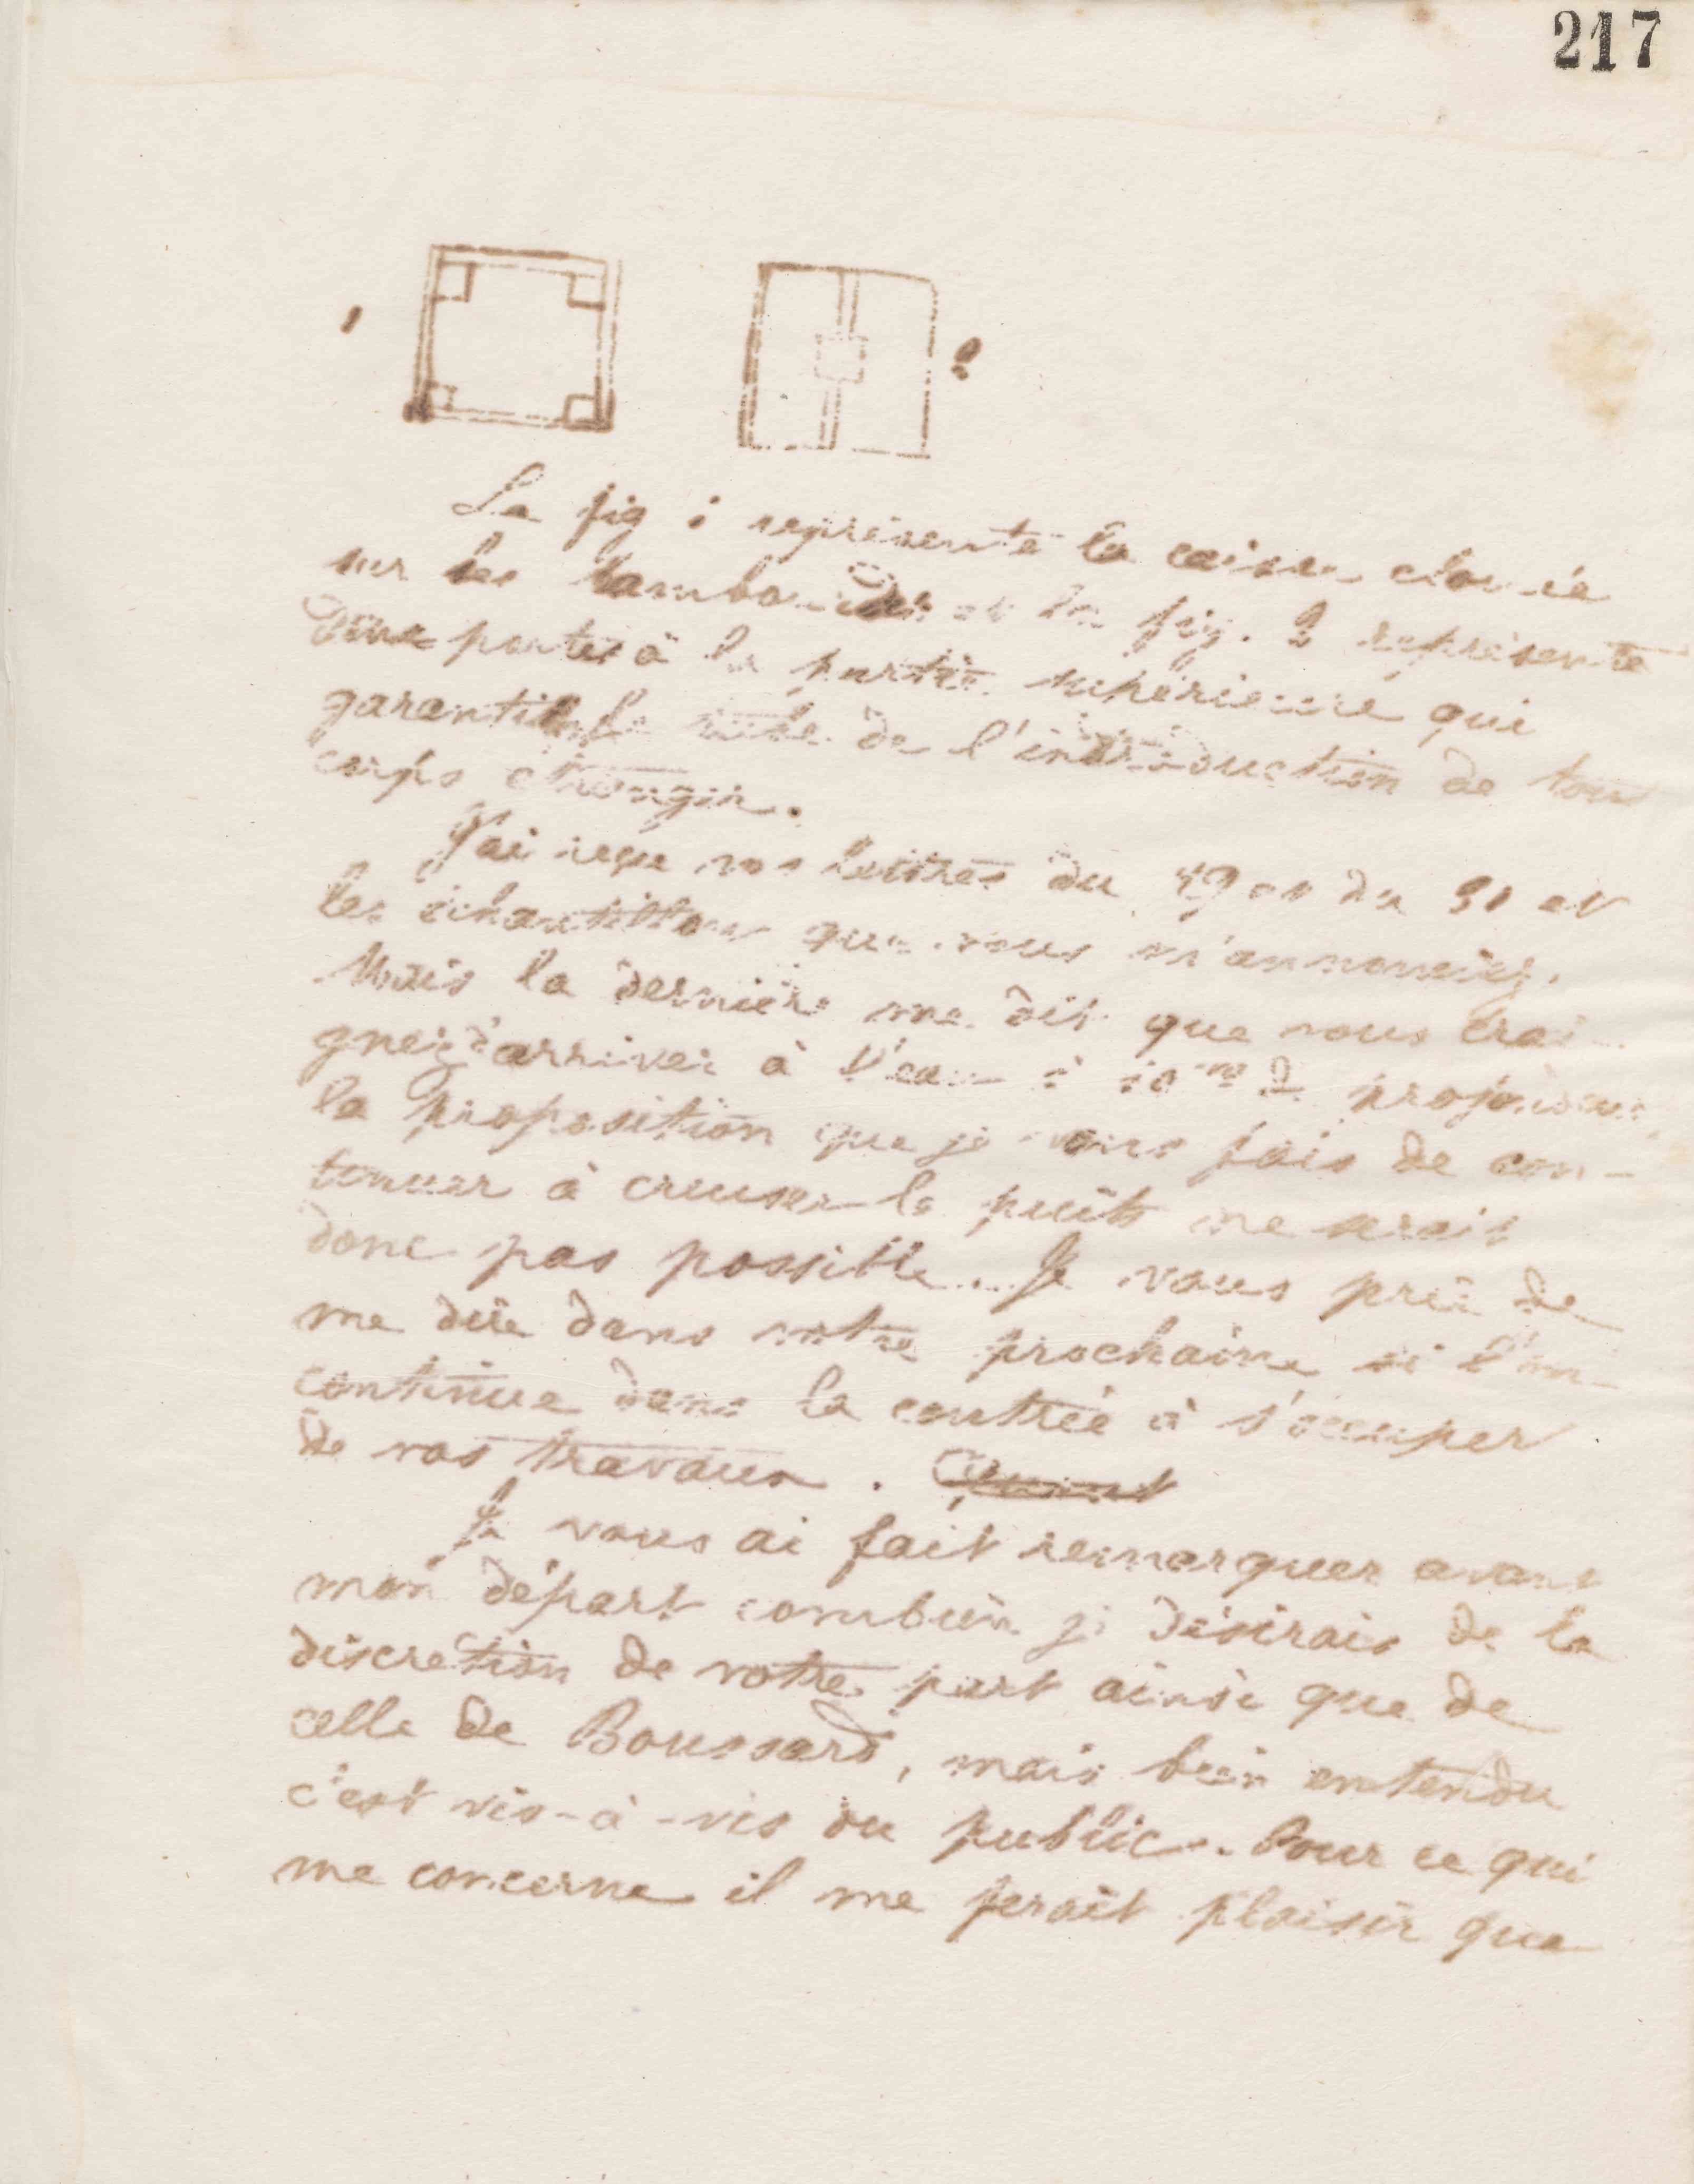 217
1
2
La fig 1 représente la caisse clouée
sur les lambourdes et la fig. 2 représente
deux portes à la partie supérieure qui
garantit le de l'introduction de tous
corps étranger.
J'ai reçu vos lettres du 19 et du 31 et
les échantillons que vous m'annonciez.
Mais la dernière me dit que vous crai-
gnez d'arriver à l'eau à 10m de profondeur,
la proposition que je vous fais de con-
tinuer à creuser le puits ne serait
donc pas possible. Je vous prie de
me dire dans votre prochaine si l'on
continue dans la contrée à s'occuper
de vos travaux. Quant
Je vous ai fait remarquer avant
mon départ combien je désirais de la
discrétion de votre part ainsi que de
celle de Boussard, mais bien entendu
c'est vis-à-vis du public. Pour ce qui
me concerne il me ferait plaisir que